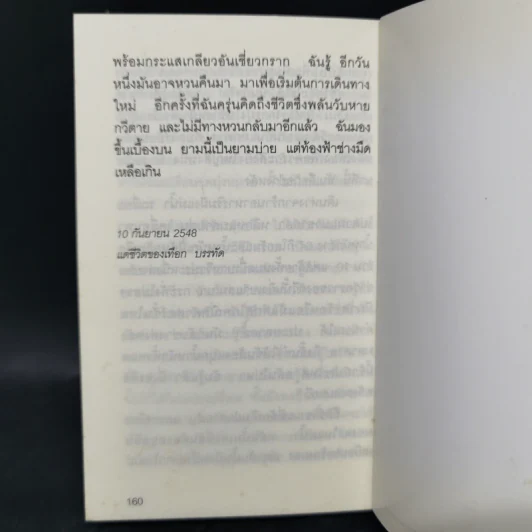 พร้อมกระแสเกลียวอันเชี่ยวกราก ฉันรู้ อีกวัน
หนึ่งมันอาจหวนคืนมา มาเพื่อเริ่มต้นการเดินทาง
ใหม่ อีกครั้งที่ฉันครุ่นคิดถึงชีวิตซึ่งพลันวับหาย
กวีตาย และไม่มีทางหวนกลับมาอีกแล้ว ฉันมอง
ขึ้นเบื้องบน ยามนี้เป็นยามบ่าย แต่ท้องฟ้าช่างมืด
เหลือเกิน
10 กันยายน 2548
แด่ชีวิตของเทือก บรรทัด
160